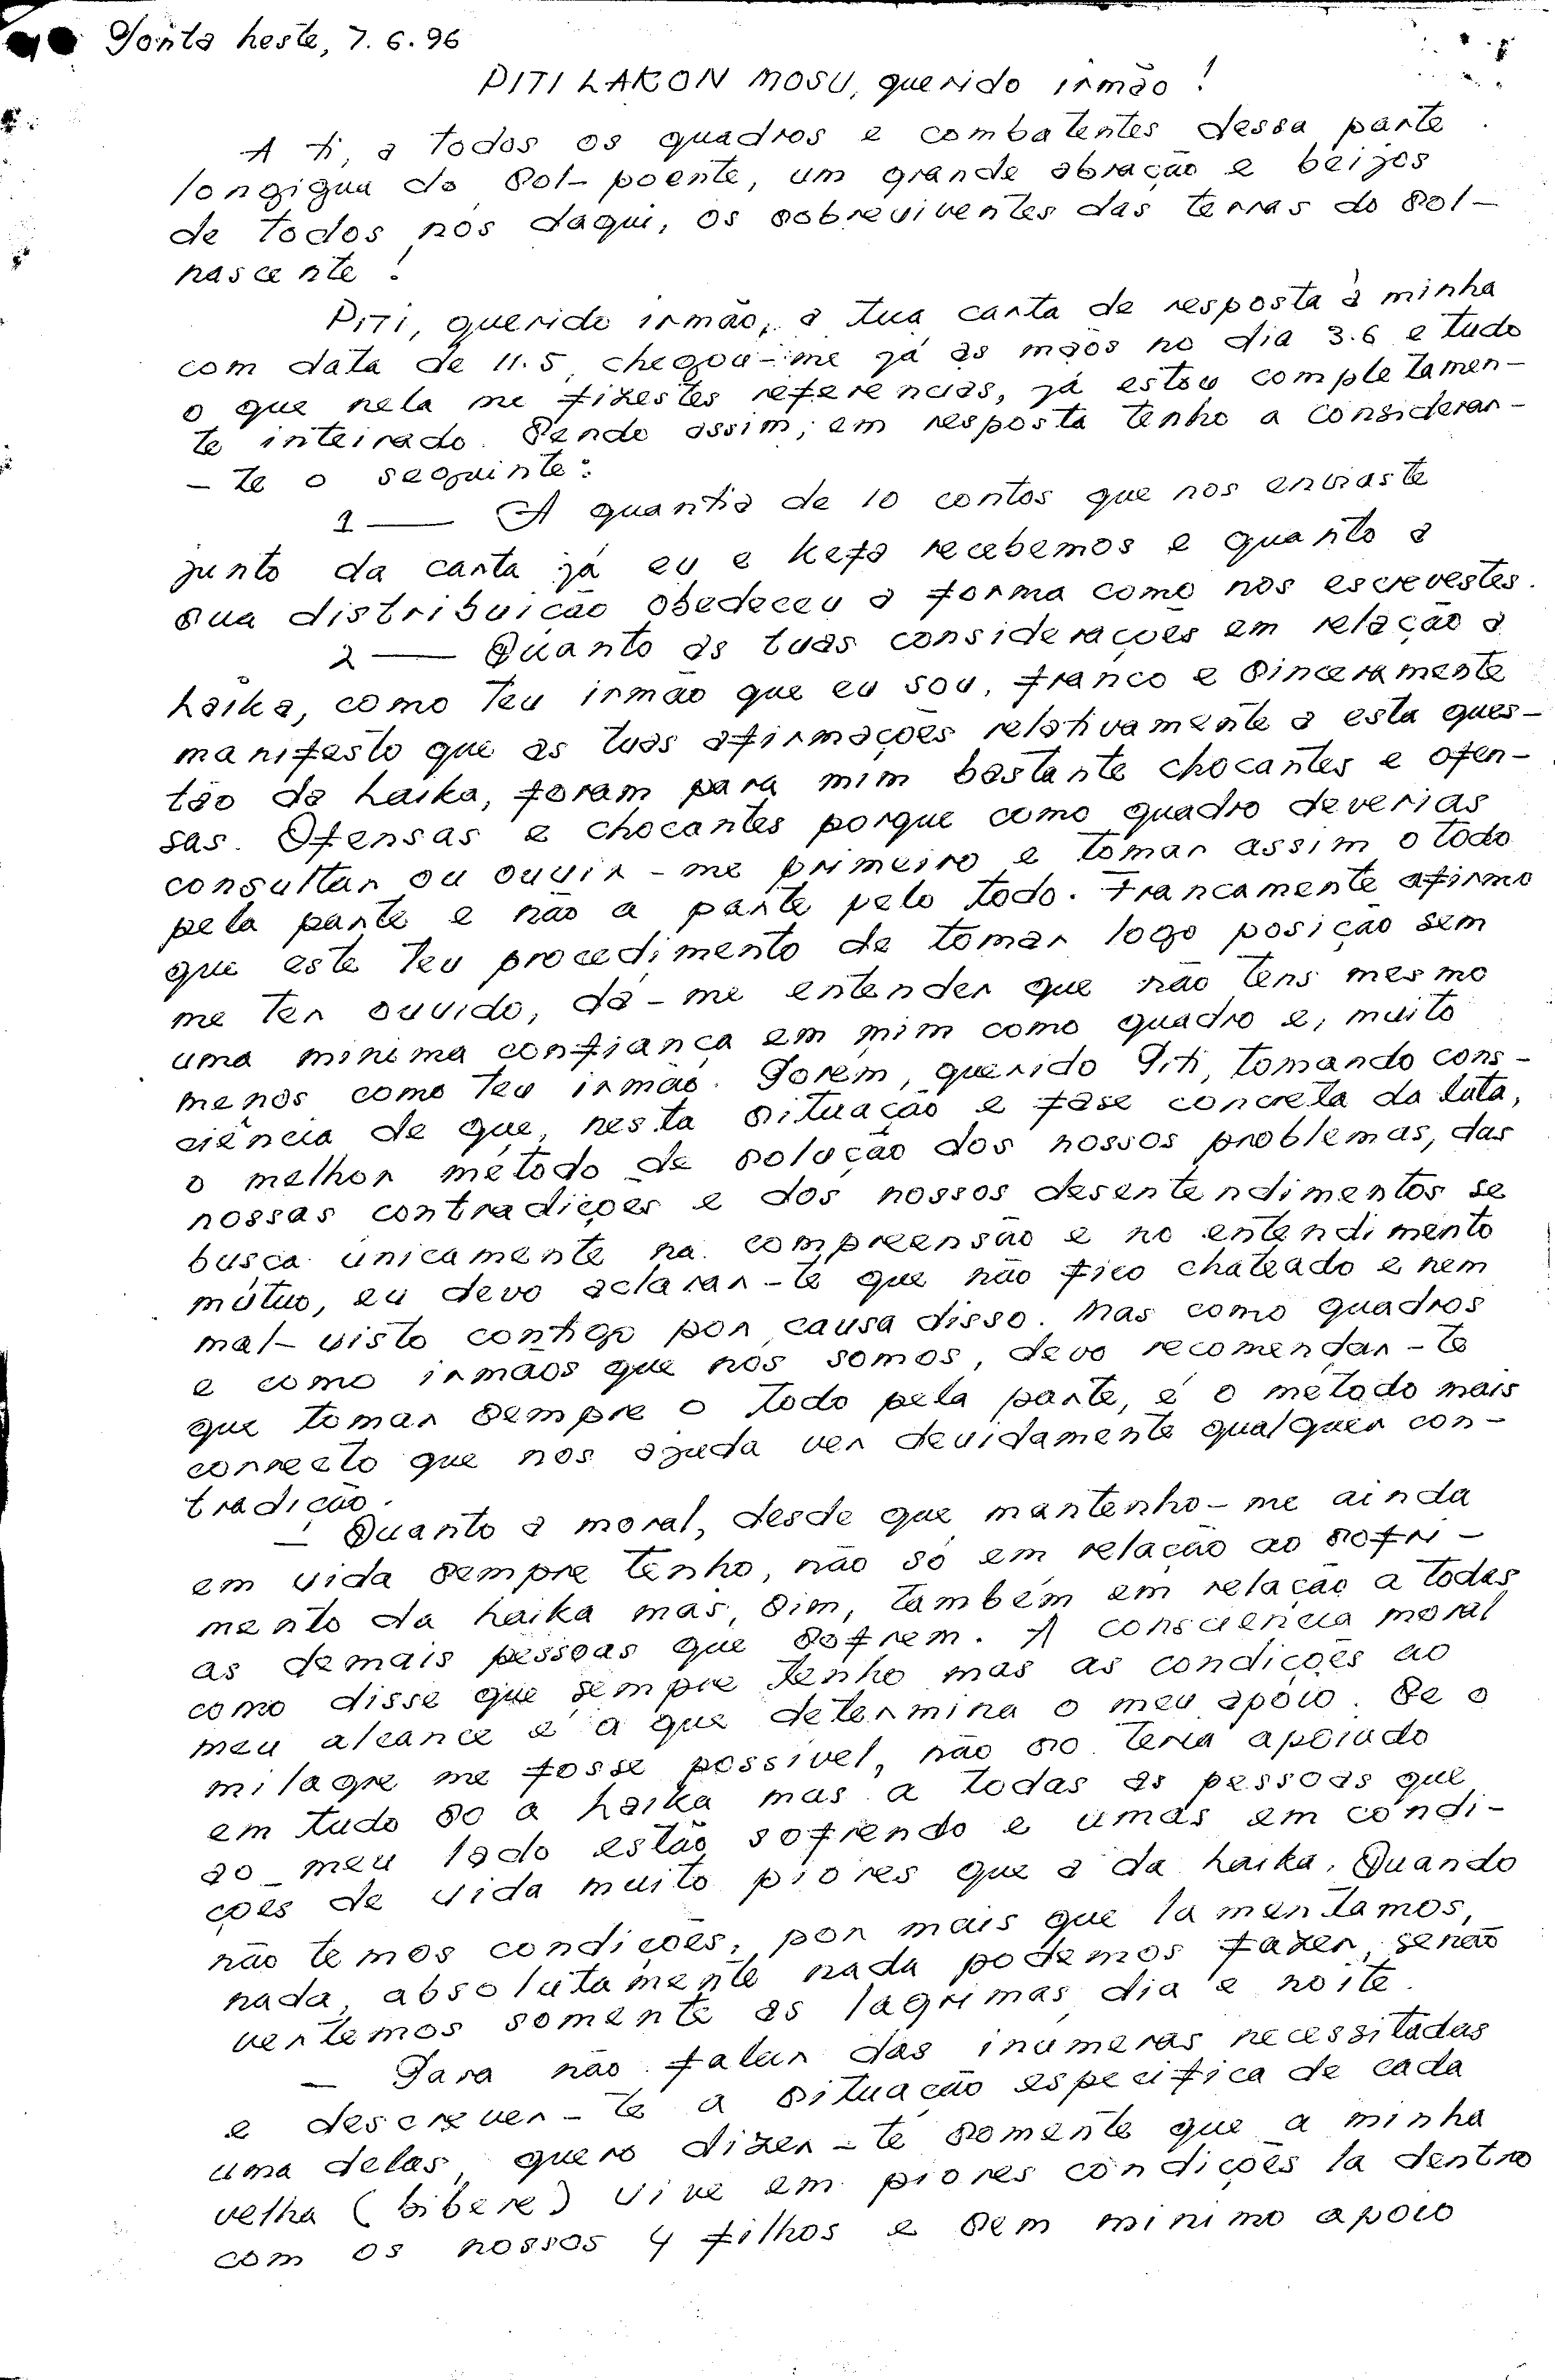 Ponta leste, 7.6.96
PITI LAKON MOSU, querido irmão!
A ti, a todos os quadros e combatentes dessa parte
longigua do Sol-poente, um grande abração e beijos
de todos nós daqui, os sobreviventes das terras do Sol-
nascente!
PITI, querido irmão, a tua carta de resposta à minha
com data de 11.5, chegou-me já às mãos no dia 3.6 e tudo
o que nela me fizestes referencias, já estou completamen-
te inteirado. Sendo assim, em resposta tenho a considerar-
-te o seguinte:
1 — A quantia de 10 contos que nos enviaste
junto da carta já eu e Kefa recebemos e quanto a
sua distribuicão obedeceu a forma como nos escrevestes.
2 — Quanto as tuas considerações em relação a
Laika, como teu irmão que eu sou, franco e sinceramente
manifesto que as tuas afirmações relativamente a esta ques-
tão da Laika, foram para mim bastante chocantes e ofen-
sas. Ofensas e chocantes porque como quadro deverias
consultar ou ouvir-me primeiro e tomar assim o todo
pela parte e não a parte pelo todo. Francamente afirmo
que este teu procedimento de tomar logo posição sem
me ter ouvido, dá-me entender que não tens mesmo
uma minima confiança em mim como quadro e, muito
menos como teu irmão. Porém, querido Piti, tomando cons-
ciência de que, nesta situação e fase concreta da luta,
o melhor método de solução dos nossos problemas, das
nossas contradições e dos nossos desentendimentos se
busca únicamente na compreensão e no entendimento
mútuo, eu devo aclarar-te que não fico chateado e nem
mal-visto contigo por causa disso. Mas como quadros
e como irmãos que nós somos, devo recomendar-te
que tomar sempre o todo pela parte, é o método mais
correcto que nos ajuda ver devidamente qualquer con-
tradição.
— Quanto a moral, desde que mantenho-me ainda
em vida sempre tenho, não só em relação ao sofri-
mento da Laika mas, sim, também em relação a todas
as demais pessoas que sofrem. A consciencia moral
como disse que sempre tenho mas as condições ao
meu alcance é a que determina o meu apoio. Se o
milagre me fosse possível, não so teria apoiado
em tudo so a Laika mas a todas as pessoas que
ao meu lado estão sofrendo e umas em condi-
ções de vida muito piores que a da Laika. Quando
não temos condições, por mais que lamentamos,
nada, absolutamente nada podemos fazer, senão
vertemos somente as lagrimas dia e noite.
— Para não falar das inúmeras necessitadas
e descrever-te a situação especifica de cada
uma delas, quero dizer-te somente que a minha
velha (bibere) vive em piores condições la dentro
com os nossos 4 filhos e sem minimo apoio